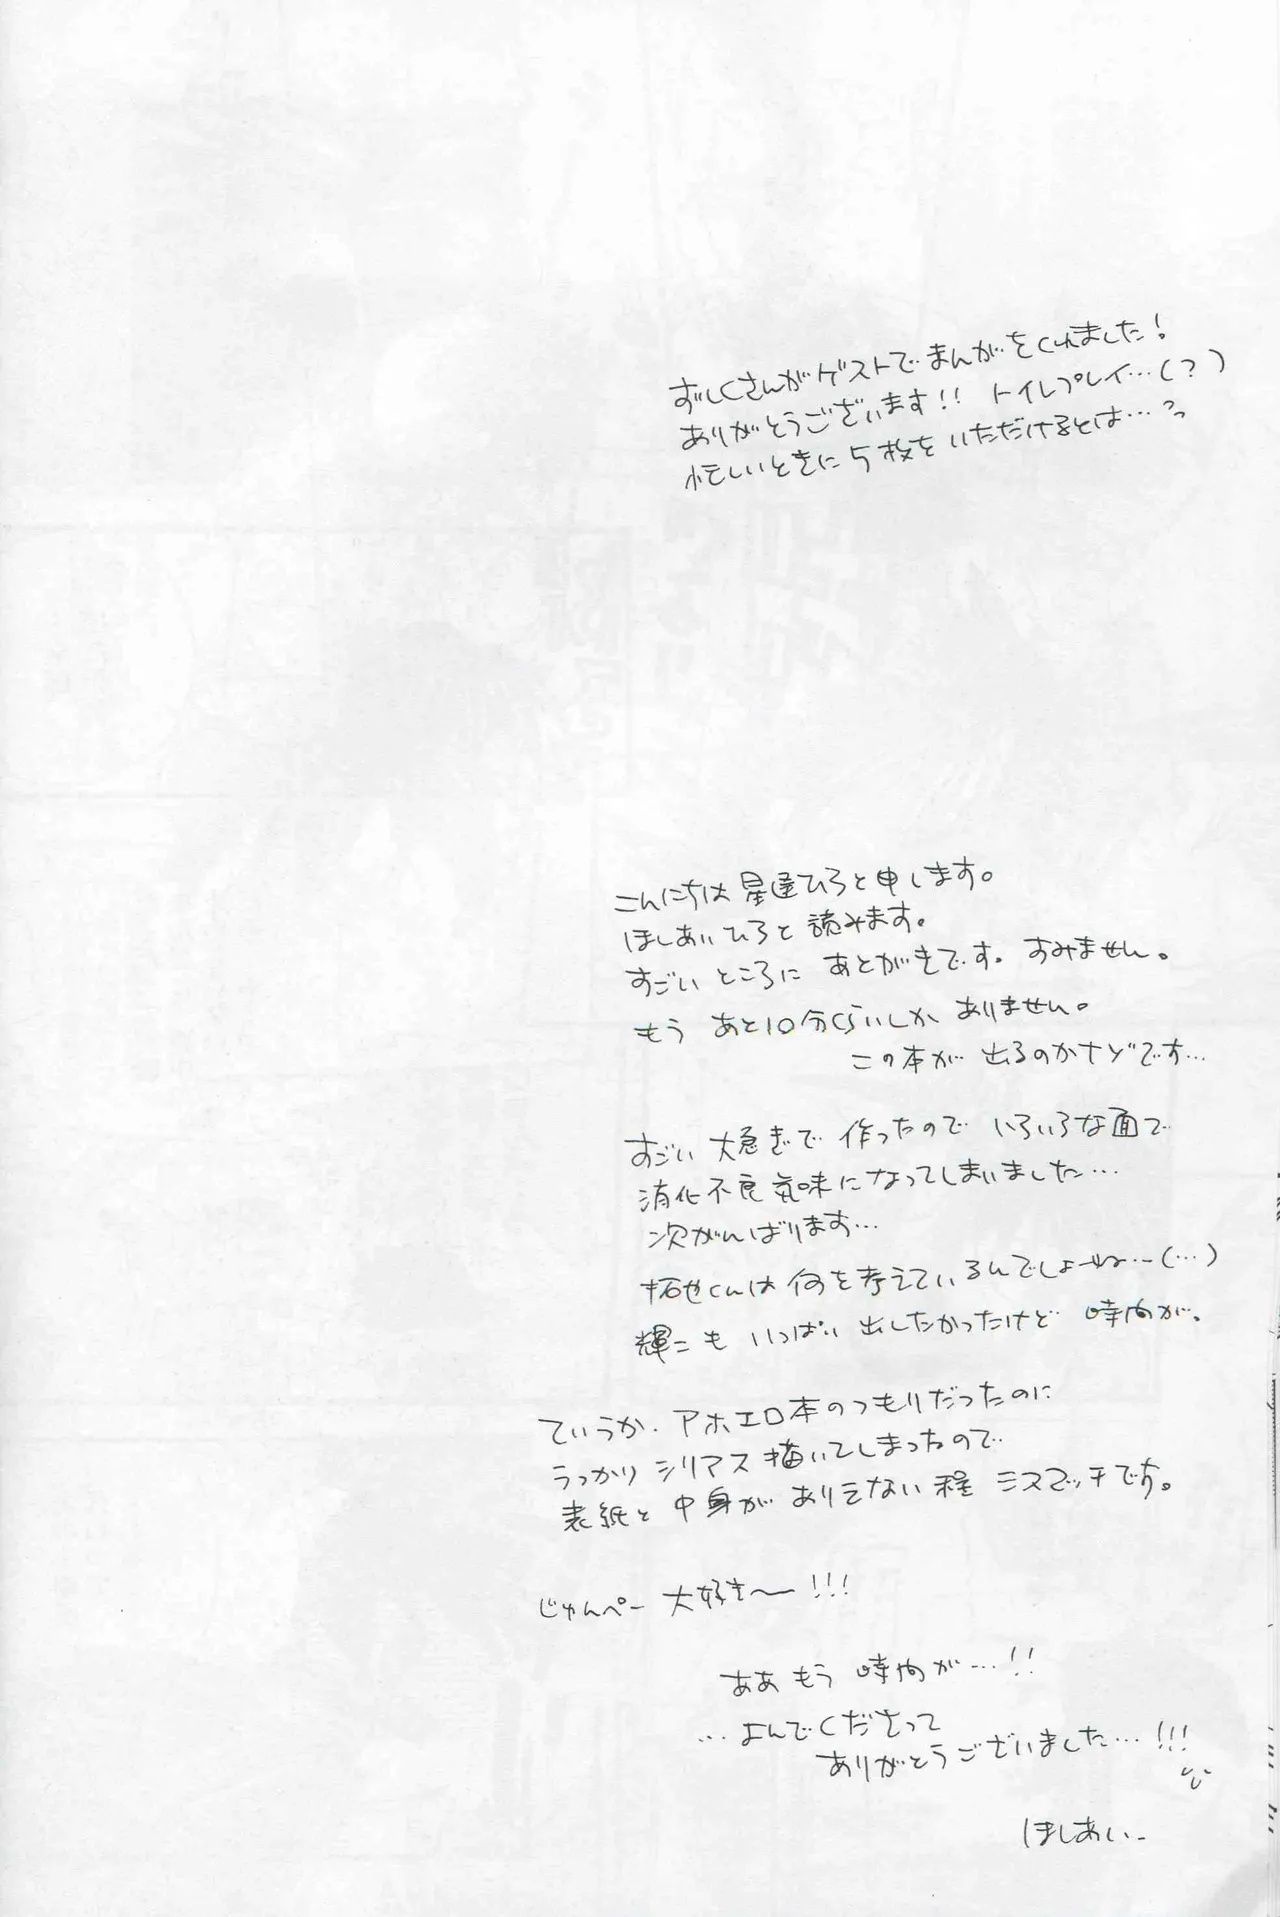 ずしくさんがゲストでまんがをくれました!
ありがとうございます!! トイレプレイ…(?)
忙しいときに5枚をいただけるとは…
こんにちは 星逢ひろと申します。
ほしあいひろと読みます。
すごいところに あとがきです。すみません。
もう あと10分くらいしか ありません。
この本が 出るのかナゾです…
すごい大急ぎで 作ったので いろいろな面で
消化不良気味になってしまいました…
次がんばります…
拓也くんは 何を考えているんでしょーね…(…)
輝二も いっぱい 出したかったけど 時間が。
ていうか、アホエロ本のつもりだったのに
うっかり シリアス描いてしまったので
表紙と 中身が ありえない程 ミスマッチです。
じゅんぺー 大好き〜!!!
ああ もう 時間が…!!
…よんでくださって
ありがとうございました…!!!
ほしあい